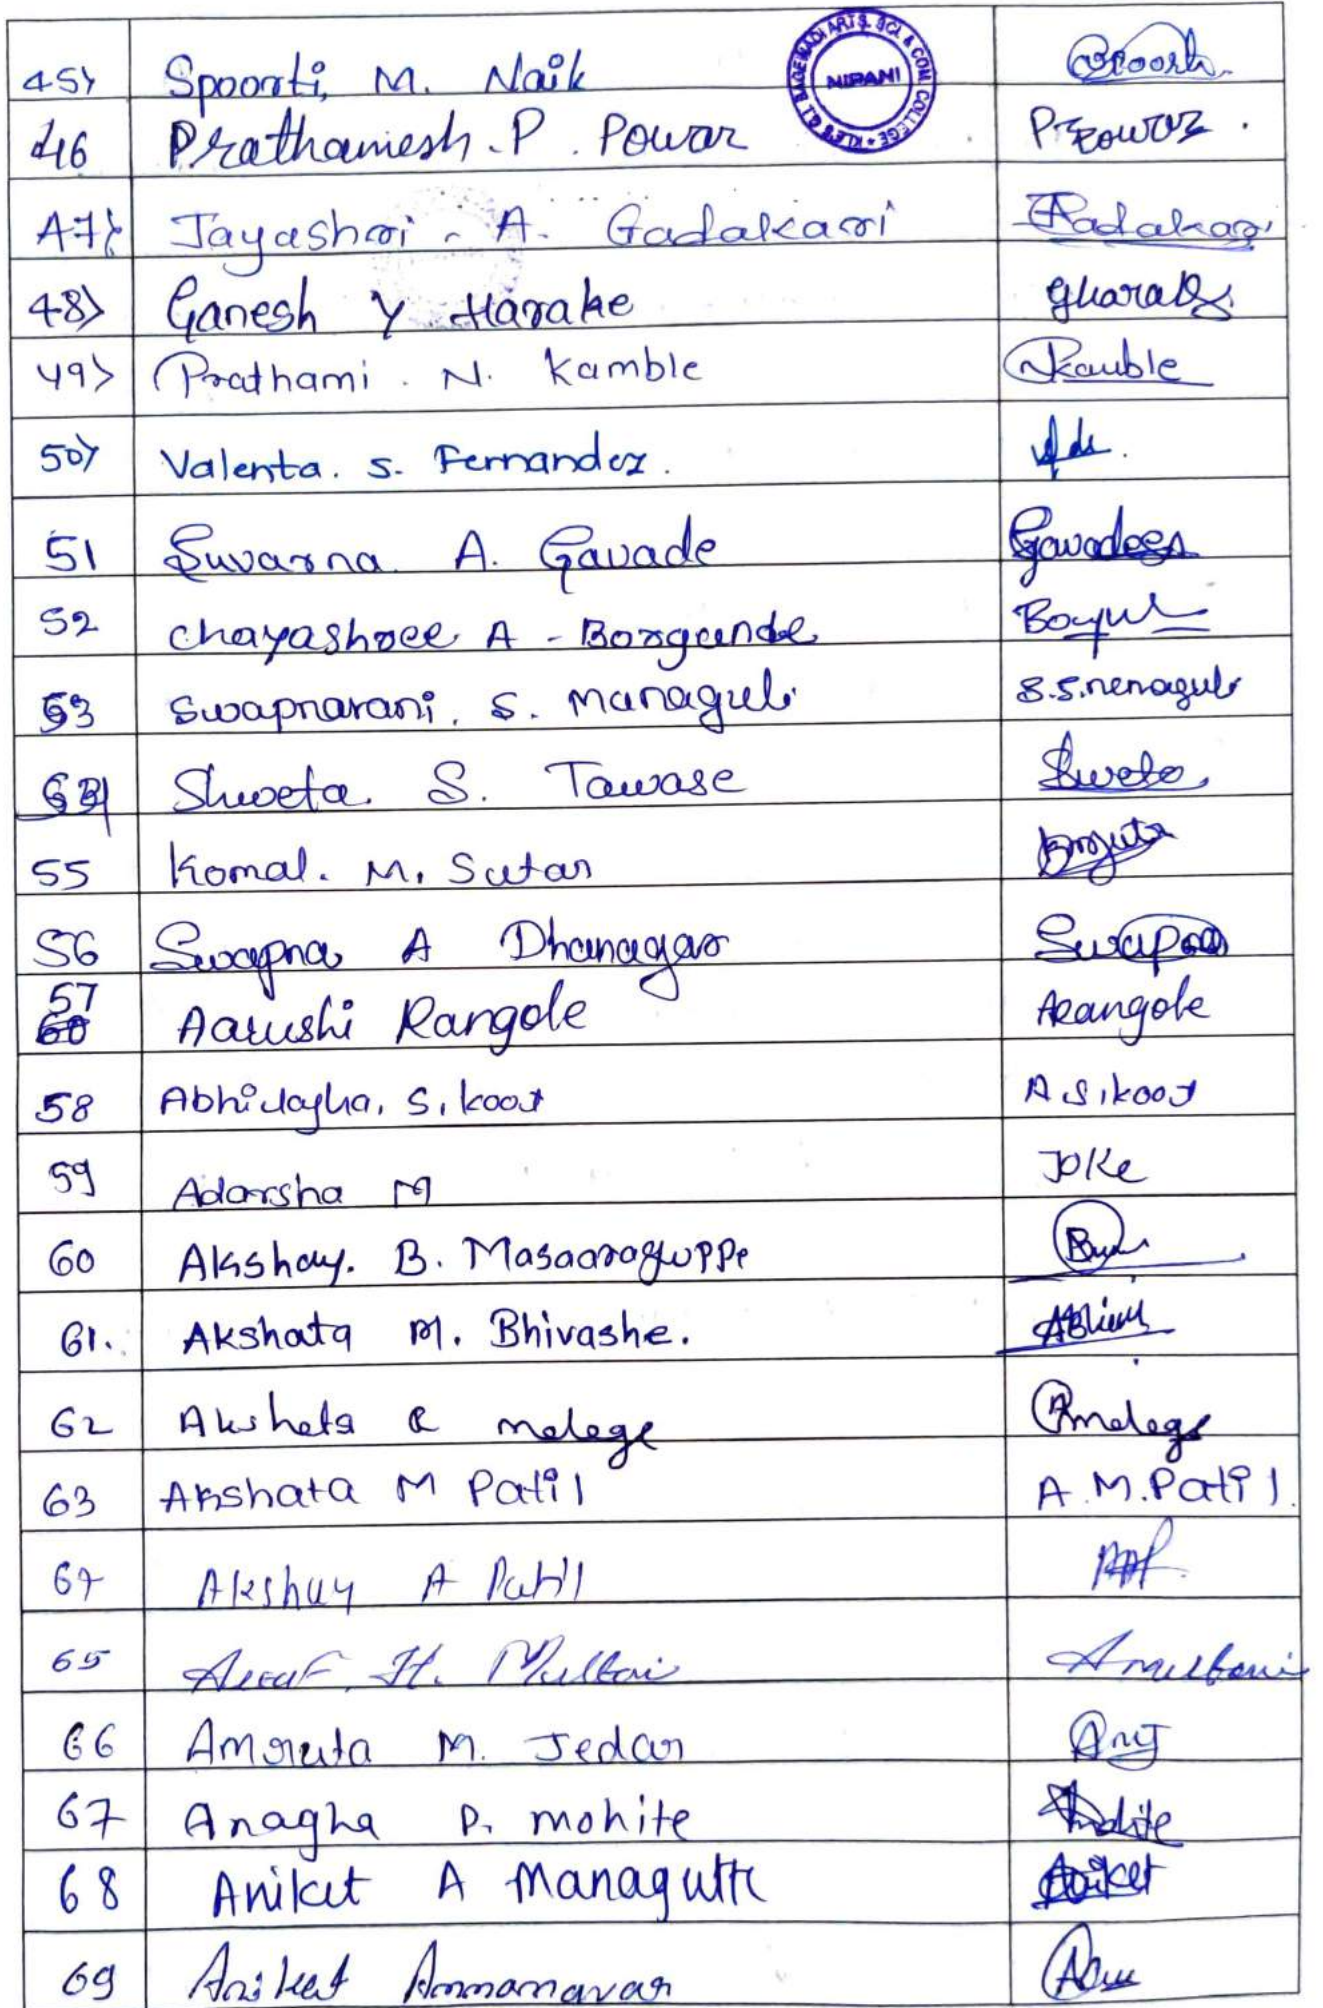 45) Spoorti, M. Naik Spoorti
KLE'S G.I. BAGEWADI ARTS. SCI. & COM. COLLEGE NIPANI
46 Prathamesh. P. Powar P. Powar.
47) Jayashri. A. Gadakari Gadakari
48) Ganesh Y Harake gharake
49) Prathami. N. Kamble Nkamble
50) Valenta. S. Fernandez.
51 Suvarna A. Gavade Gavade
52 chayashree A - Borgunde
53 Swapnarani. S. managuli S.S.menaguli
Shweta. S. Tawase Shweta
55 Komal. M. Sutar
56 Swapna A Dhanagar Swapna
57 Aarushi Rangole ARangole
58 S. koot A.S.koot
59 Adarsha M JOKe
60 Akshay. B. Masaaraguppe
61. Akshata M. Bhivashe.
62 Akshata R melage Amelage
63 Akshata M Patil A.M.Patil.
64 Akshay A Patil
65 H.
66 Amruta M. Jedar AMJ
67 Anagha D. mohite Mohite
68 Aniket A Managutti Aniket
69 Aniket Ammanavar